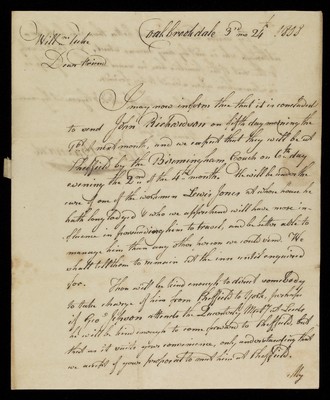 Coalbrookdale 3rd mo 24th 1818
Willm Tuke
Dear Friend
I may now inform thee that it is concluded
to send John Richardson on fifth day morning the
next month, and we expect that they will be at
Sheffield by the Birmingham Coach on 6th day
evening the 2nd of the 4th month. He will be under the
care of one of the workmen Lewis Jones at whose house he
hath long lodged & who we apprehend will have more in-
fluence in him to travel, and be better able to
manage him than any other person we could send. We
shall tell them to remain at the inn until enquired
for.
Thou will be kind enough to direct somebody
to take charge of him from Sheffield to York, perhaps
if Geo attends the Quarterly Meetg at Leeds
he will be kind enough to come forward to Sheffield, but
that as it suits your convenience, only understanding that
we accept of your proposal to meet him at Sheffield.
My